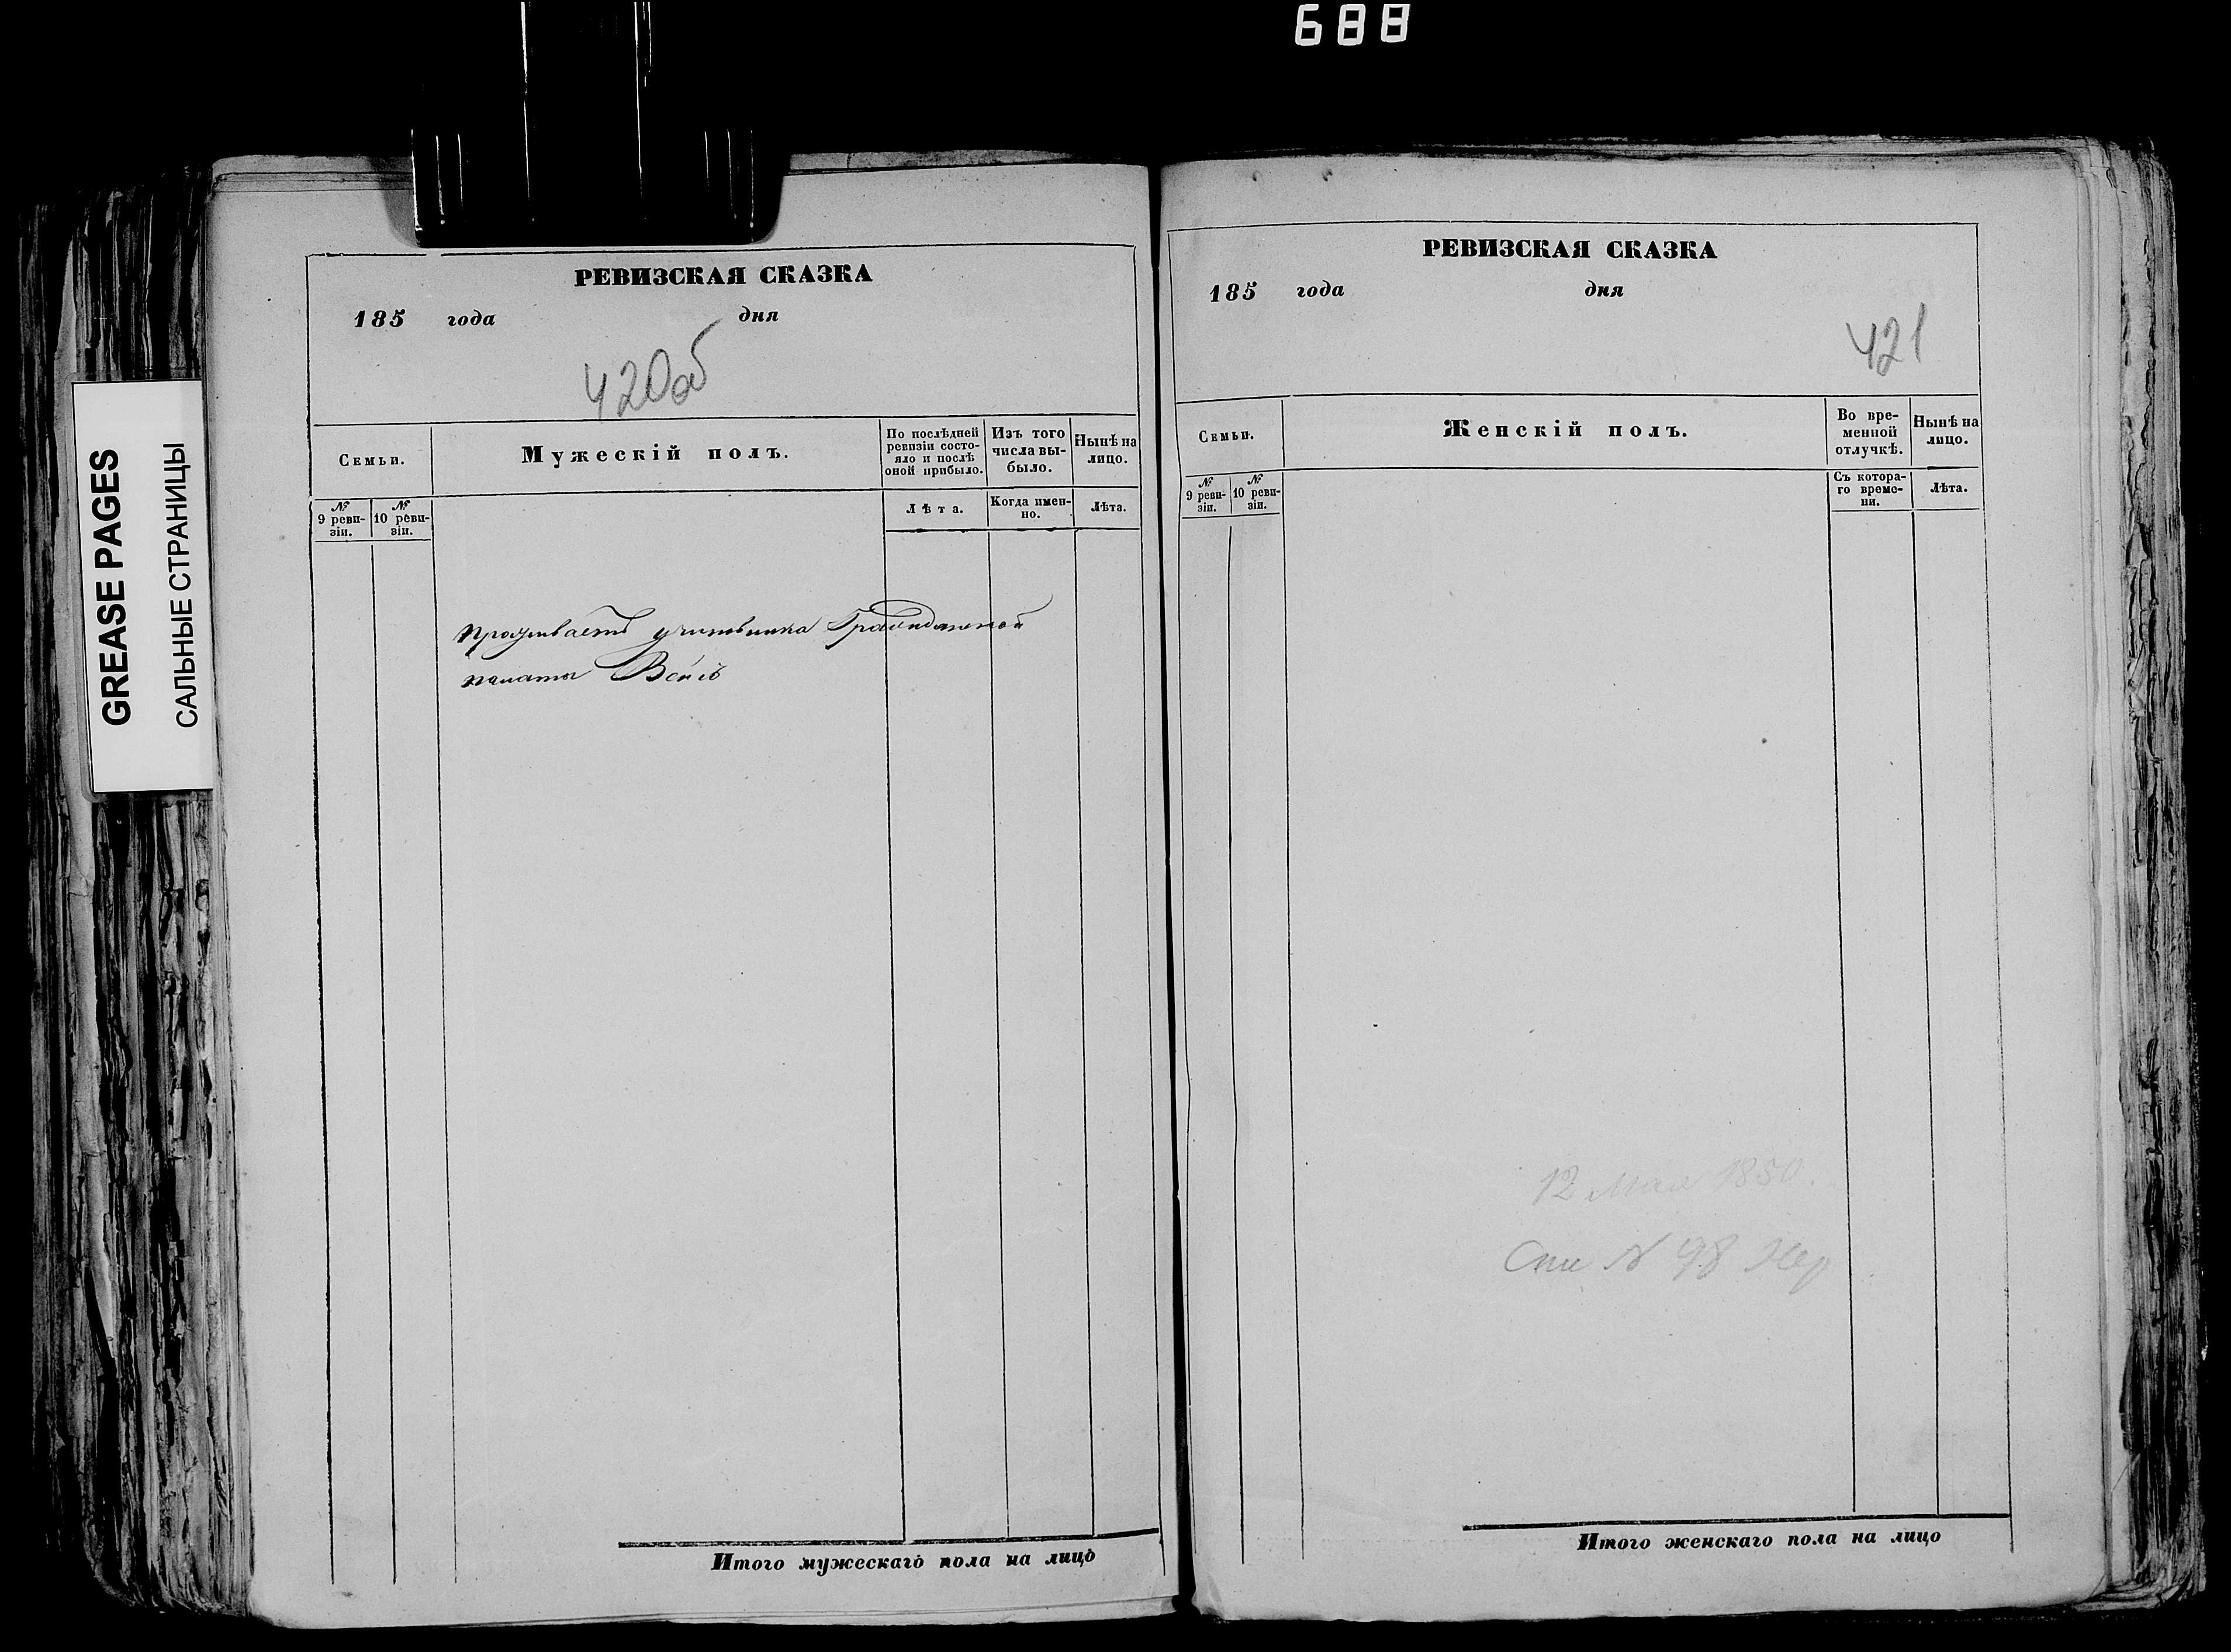 688
GREASE PAGES
САЛЬНЫЕ СТРАНИЦЫ
РЕВИЗСКАЯ СКАЗКА
185 года дня
420об
Семьи.
Мужескій полъ.
По послѣдней
ревизіи состо-
яло и послѣ
оной прибыло.
Изъ того
числа вы-
было.
Нынѣ на
лицо.
№
9 реви-
зіи.
№
10 реви-
зіи.
Лѣта.
Когда имен-
но.
Лѣта.
проживаетъ учиновника Гражданской
палаты
Итого мужескаго пола на лицо
РЕВИЗСКАЯ СКАЗКА
185 года дня
421
Семьи.
Женскій полъ.
Во вре-
менной
отлучкѣ.
Нынѣ на
лицо.
№
9 реви-
зіи.
№
10 реви-
зіи.
Съ котора-
го време-
ни.
Лѣта.
12 Мая 1850.
№ 98
Итого женскаго пола на лицо